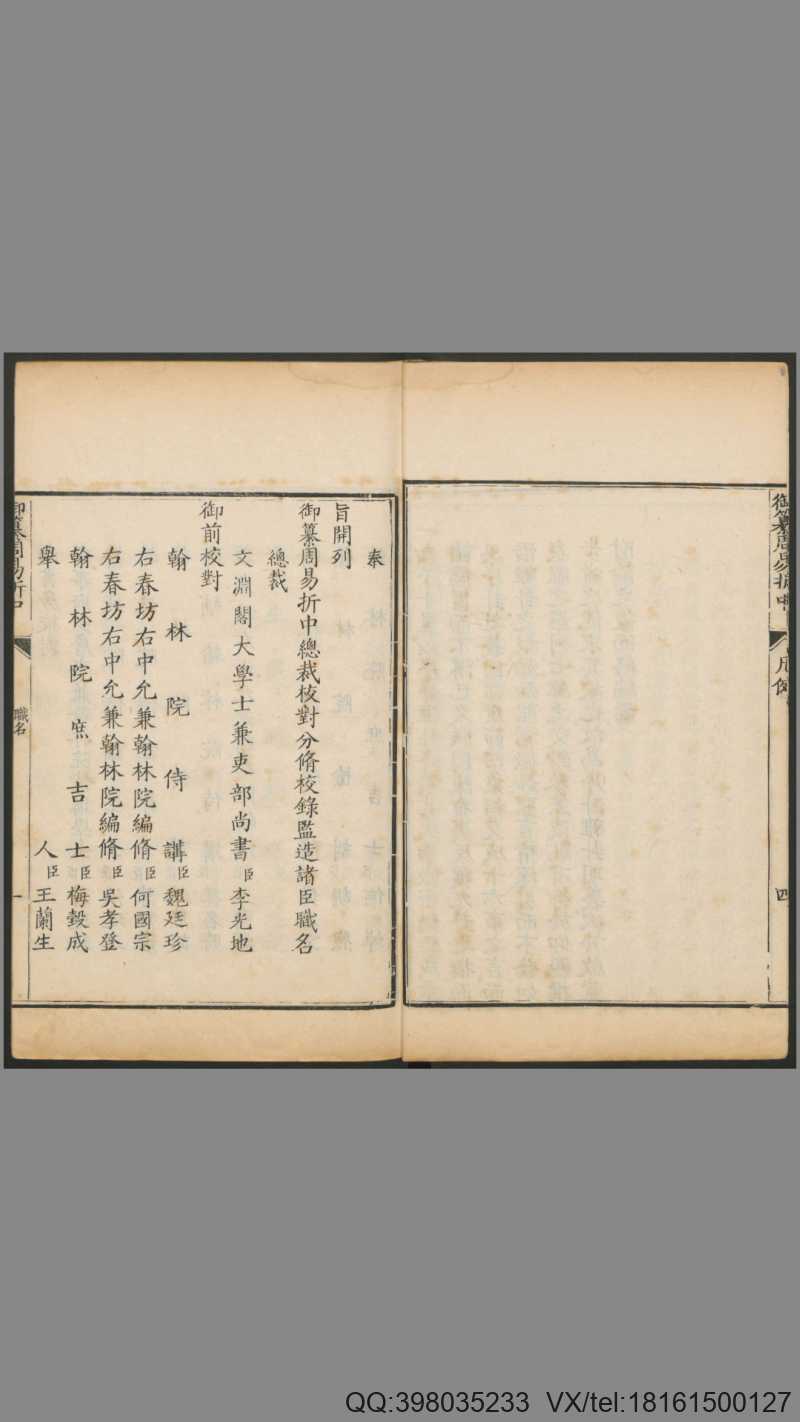 御纂周易折中
凡例
四
奉
旨開列
御纂周易折中總裁校對分脩校錄監造諸臣職名
總裁
文淵閣大學士兼吏部尚書臣李光地
御前校對
翰林院侍講臣魏廷珍
右春坊右中允兼翰林院編脩臣何國宗
右春坊右中允兼翰林院編脩臣吳孝登
翰林院庶吉士臣梅瑴成
舉人臣王蘭生
御纂周易折中
職名
一
QQ:398035233 VX/tel:18161500127